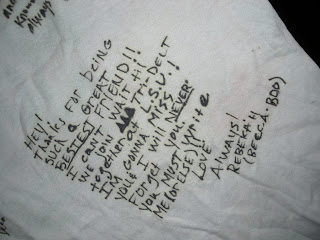 always
HEY!
Thanks for being
Such a great
BESTEST FRIEND!!
I CAN'T WAIT til
we DON ΔΔΔ TRI-DELT
together at LSU!!
I'M GONNA MISS
you & I will NEVER
FORget you!
You MUST write
ME (OR ELSE)!
LOVE
Always!
REBEKAH
(BECCA-BOO)